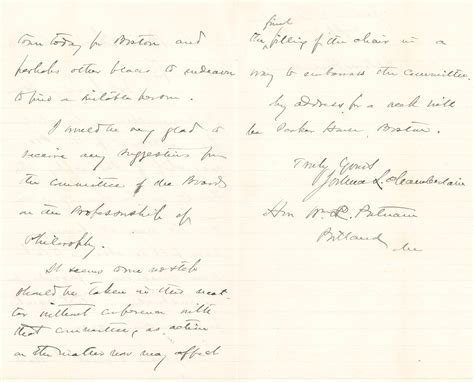 town today for Boston and
perhaps other places to endeavor
to find a suitable person.
I would be very glad to
receive any suggestions from
the Committee of the Boards
on the Professorship of
Philosophy.
It seems some no step
should be taken in this mat-
ter without conference with
that committee, as action
on the matter now may affect
final
the filling of the chair in a
way to embarrass the Committee.
My address for a week will
be Parker House, Boston.
Truly Yours
Joshua L. Chamberlain
Hon Wm L. Putnam
Portland
Me